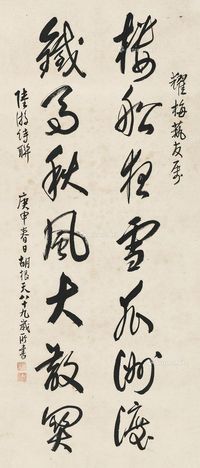 耀梅藝友屬
樓船夜雪瓜洲渡
鐵馬秋風大散關
陸游詩聯
庚申春日胡根天八十九歲所書